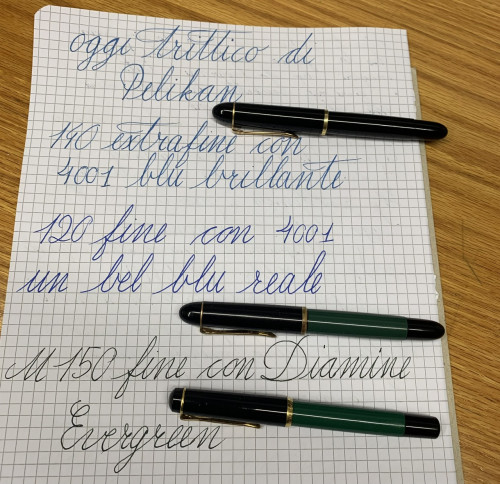 oggi trittico di
Pelikan
140 extrafine con
4001 blu brillante
120 fine con 4001
un bel blu reale
M150 fine con Diamine
Evergreen